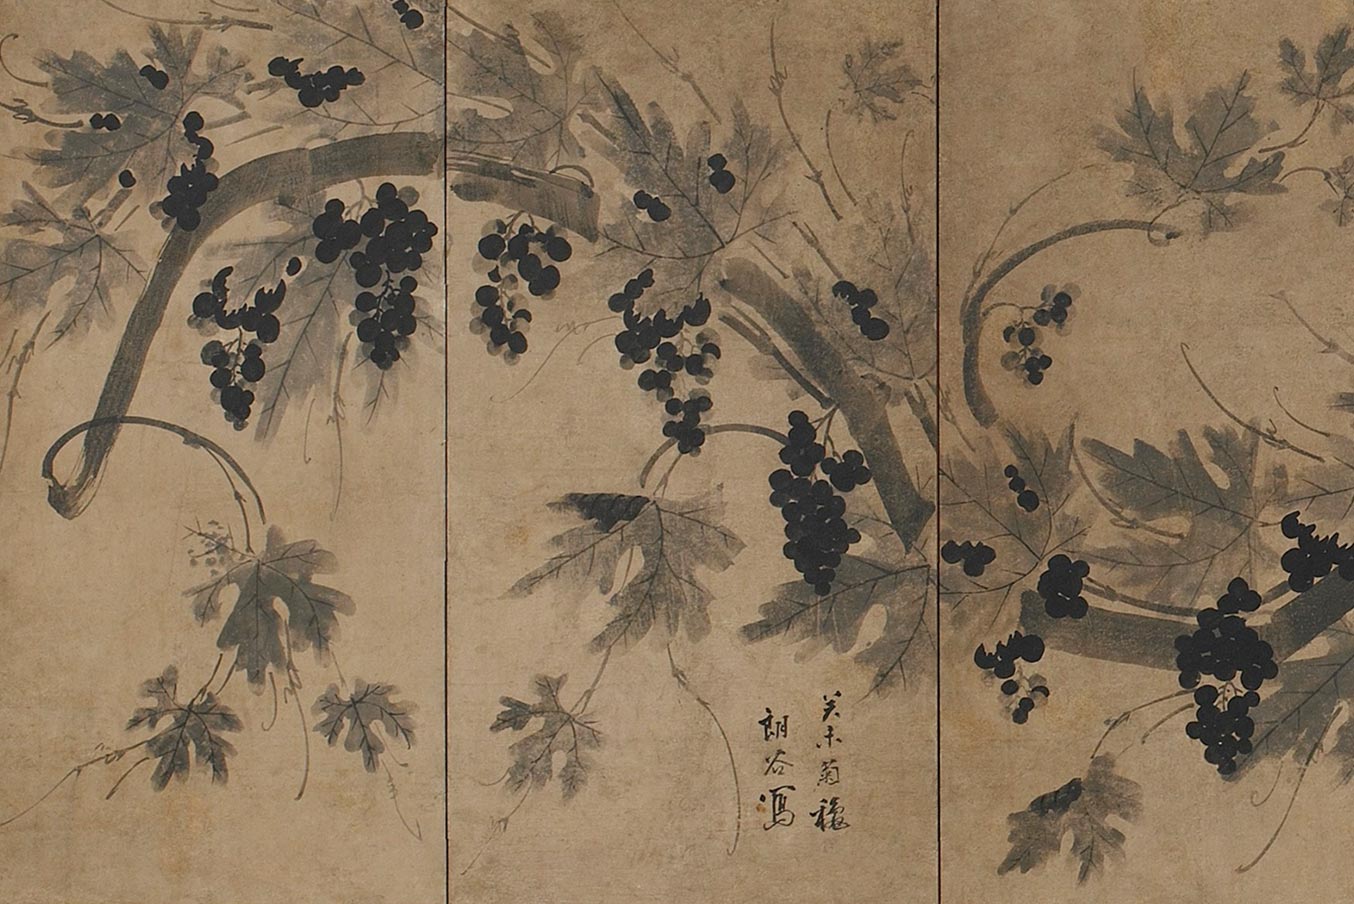 癸未菊穐
朗谷寫